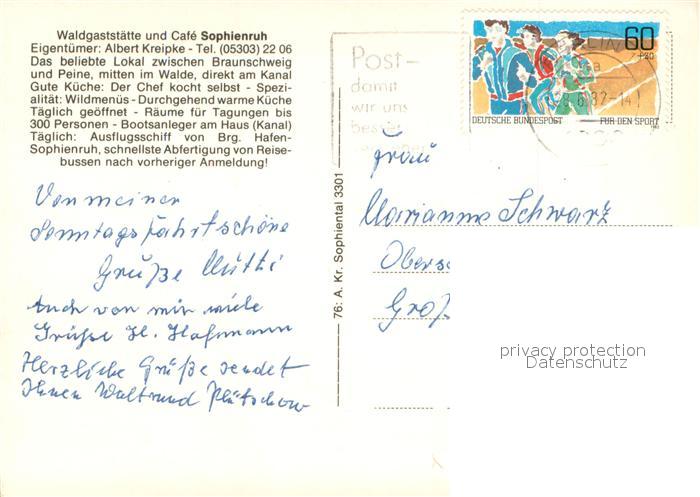 Waldgaststätte und Café Sophienruh
Eigentümer: Albert Kreipke - Tel. (05303) 22 06
Das beliebte Lokal zwischen Braunschweig
und Peine, mitten im Walde, direkt am Kanal
Gute Küche: Der Chef kocht selbst - Spezi-
alität: Wildmenüs - Durchgehend warme Küche
Täglich geöffnet - Räume für Tagungen bis
300 Personen - Bootsanleger am Haus (Kanal)
Täglich: Ausflugsschiff von Brg. Hafen-
Sophienruh, schnellste Abfertigung von Reise-
bussen nach vorheriger Anmeldung!
Von meiner
Sonntagsfahrt schöne
Grüße Mutti
Auch von mir viele
Grüße H. Hofmann
Herzliche Grüße sendet
Ihnen Waltraud Plütschow
76: A. Kr. Sophiental 3301
Post-
damit
wir uns
besser
60
+30
DEUTSCHE BUNDESPOST FÜR DEN SPORT
Frau
Marianne Schwarz
Obers
Groß
privacy protection
Datenschutz